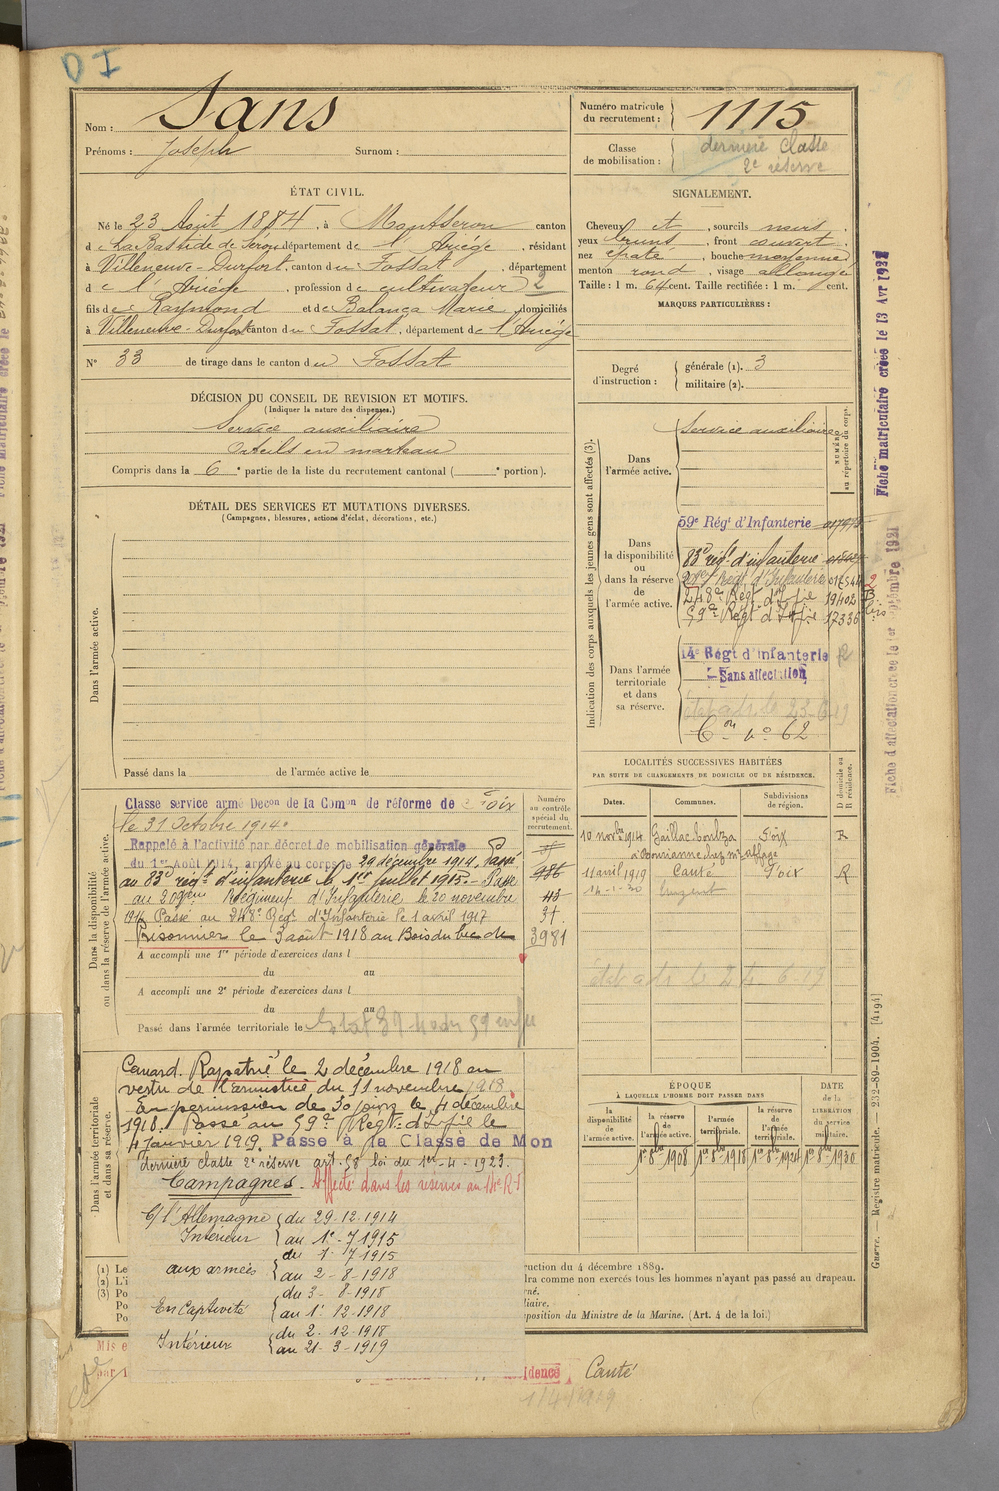 D I
Nom : Sans
Prénoms : Joseph Surnom :
Numéro matricule du recrutement : 1115
Classe de mobilisation : dernière classe 2e réserve
ÉTAT CIVIL.
Né le 23 Août 1884, à Montseron canton
de La Bastide de Sérou département de l'Ariège, résidant
à Villeneuve-Durfort, canton du Fossat, département
de l'Ariège, profession de cultivateur 2
fils de Raymond et de Balança Marie, domiciliés
à Villeneuve-Durfort canton du Fossat, département de l'Ariège
N° 33 de tirage dans le canton du Fossat
SIGNALEMENT.
Cheveux et, sourcils noirs,
yeux bruns, front couvert,
nez épaté, bouche moyenne,
menton rond, visage allongé
Taille : 1 m. 64 cent. Taille rectifiée : 1 m. cent.
MARQUES PARTICULIÈRES :
Degré d'instruction : générale (1). 3
militaire (2).
DÉCISION DU CONSEIL DE REVISION ET MOTIFS.
(Indiquer la nature des dispenses.)
Service auxiliaire
Orteils en marteau
Compris dans la 6e partie de la liste du recrutement cantonal ( e portion).
DÉTAIL DES SERVICES ET MUTATIONS DIVERSES.
(Campagnes, blessures, actions d'éclat, décorations, etc.)
Dans l'armée active.
Passé dans la de l'armée active le
Indication des corps auxquels les jeunes gens sont affectés (3).
NUMÉRO au répertoire du corps.
Dans l'armée active.
Service auxiliaire
Dans la disponibilité ou dans la réserve de l'armée active.
59e Régt d'Infanterie
83e régt d'infanterie
209e Régt d'Infanterie 017544
248e Régt d'Infie 19402
59e Régt d'Infie 17336
2 B bis
Dans l'armée territoriale et dans sa réserve.
14e Régt d'infanterie
Sans affectation
Con no 62
Dans la disponibilité ou dans la réserve de l'armée active.
Numéro au contrôle spécial du recrutement.
Classé service armé Décon de la Comon de réforme de Foix
le 31 Octobre 1914.
Rappelé à l'activité par décret de mobilisation générale
du 1er Août 1914, arrivé au corps le 29 décembre 1914. Passé
au 83e régt d'infanterie le 1er Juillet 1915. - Passé
au 209eme Régiment d'Infanterie le 20 novembre
1916 Passé au 248e Régt d'Infanterie le 1 avril 1917
Prisonnier le 3 août 1918 au Bois du bec de
986
43
37.
3981
A accompli une 1re période d'exercices dans l
du au
A accompli une 2e période d'exercices dans l
du au
Passé dans l'armée territoriale le
LOCALITÉS SUCCESSIVES HABITÉES
PAR SUITE DE CHANGEMENTS DE DOMICILE OU DE RÉSIDENCE.
Dates. Communes. Subdivisions de région. D domicile ou R résidence.
10 novbre 1914 Gaillac-toulza Foix R
11 avril 1919 Canté Foix R
14-1-30
état a/s le 24-6-19
Dans l'armée territoriale et dans sa réserve.
Canard. Rapatrié le 2 décembre 1918 en
vertu de l'armistice du 11 novembre 1918.
En permission de 30 jours le 4 décembre
1918. Passé au 59e Régt d'Infie le
4 janvier 1919. Passé à la Classe de Mon
dernière classe 2e réserve art. 58 loi du 1er-4-1923.
Campagnes. Affecté dans les réserves au 14e R I
C/ l'Allemagne
Intérieur du 29.12.1914 au 1er-7-1915
aux armées du 1-7-1915 au 2-8-1918
En Captivité du 3-8-1918 au 1er.12-1918
Intérieur du 2.12-1918 au 21-3-1919
ÉPOQUE
À LAQUELLE L'HOMME DOIT PASSER DANS
la disponibilité de l'armée active.
la réserve de l'armée active.
l'armée territoriale.
la réserve de l'armée territoriale.
DATE de la LIBÉRATION du service militaire.
1er 8bre 1908 1er 8bre 1918 1er 8bre 1924 1er 8bre 1930
(1) Le
(2) L'i
(3) Po
Po
Po
ruction du 4 décembre 1889.
dra comme non exercés tous les hommes n'ayant pas passé au drapeau.
rné.
iliaire.
sposition du Ministre de la Marine. (Art. 4 de la loi.)
Mis e
par l
idence Canté
Fiche matriculaire créée le 13 Avr 193
Fiche d'affectation créée le 1er septembre 1921
Guerre. — Registre matricule. — 232-89-1904. [4194]